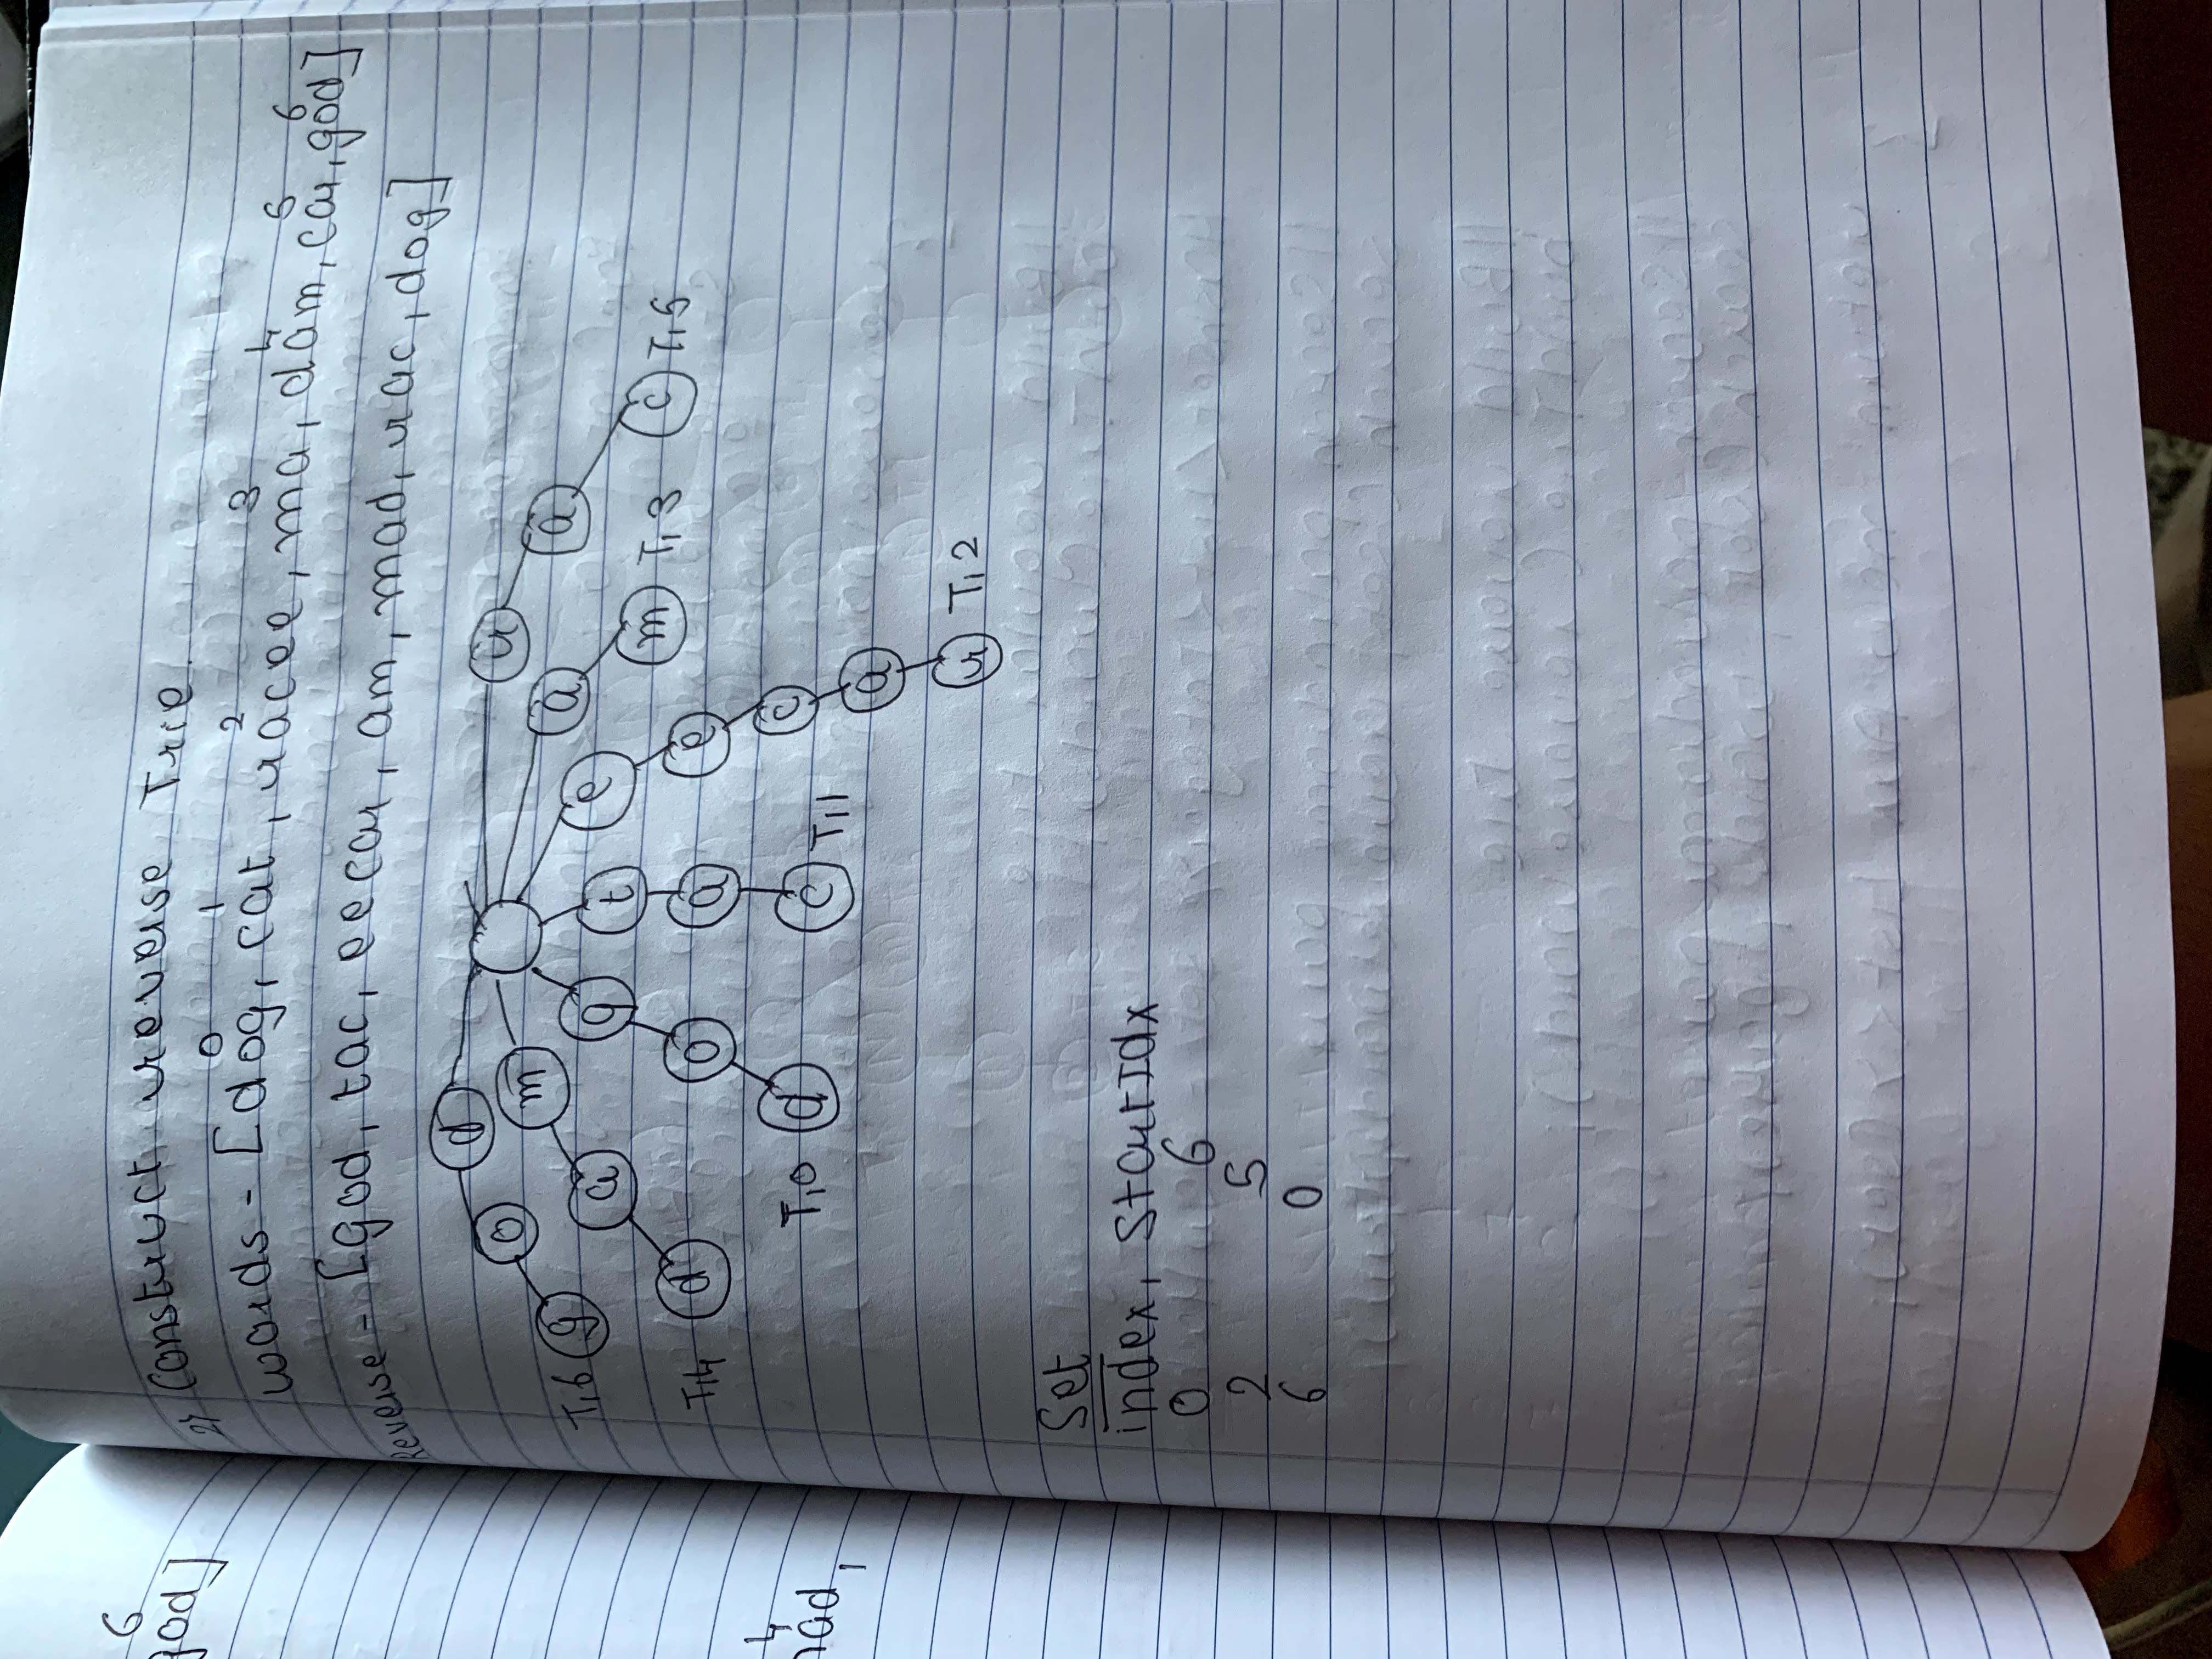 6
god]
4
mad,
2) Construct reverse Trie.
0 1 2 3 4 5 6
words - [dog, cat, racee, ma, dam, car, god]
Reverse - [god, tac, eecar, am, mad, rac, dog]
d r
o m a a
T,6 g a g t e
m T,3 c T,5
T,4 d o a e
T,0 d c T,1 c
a
r T,2
Set
index, startIdx
0 6
2 5
6 0